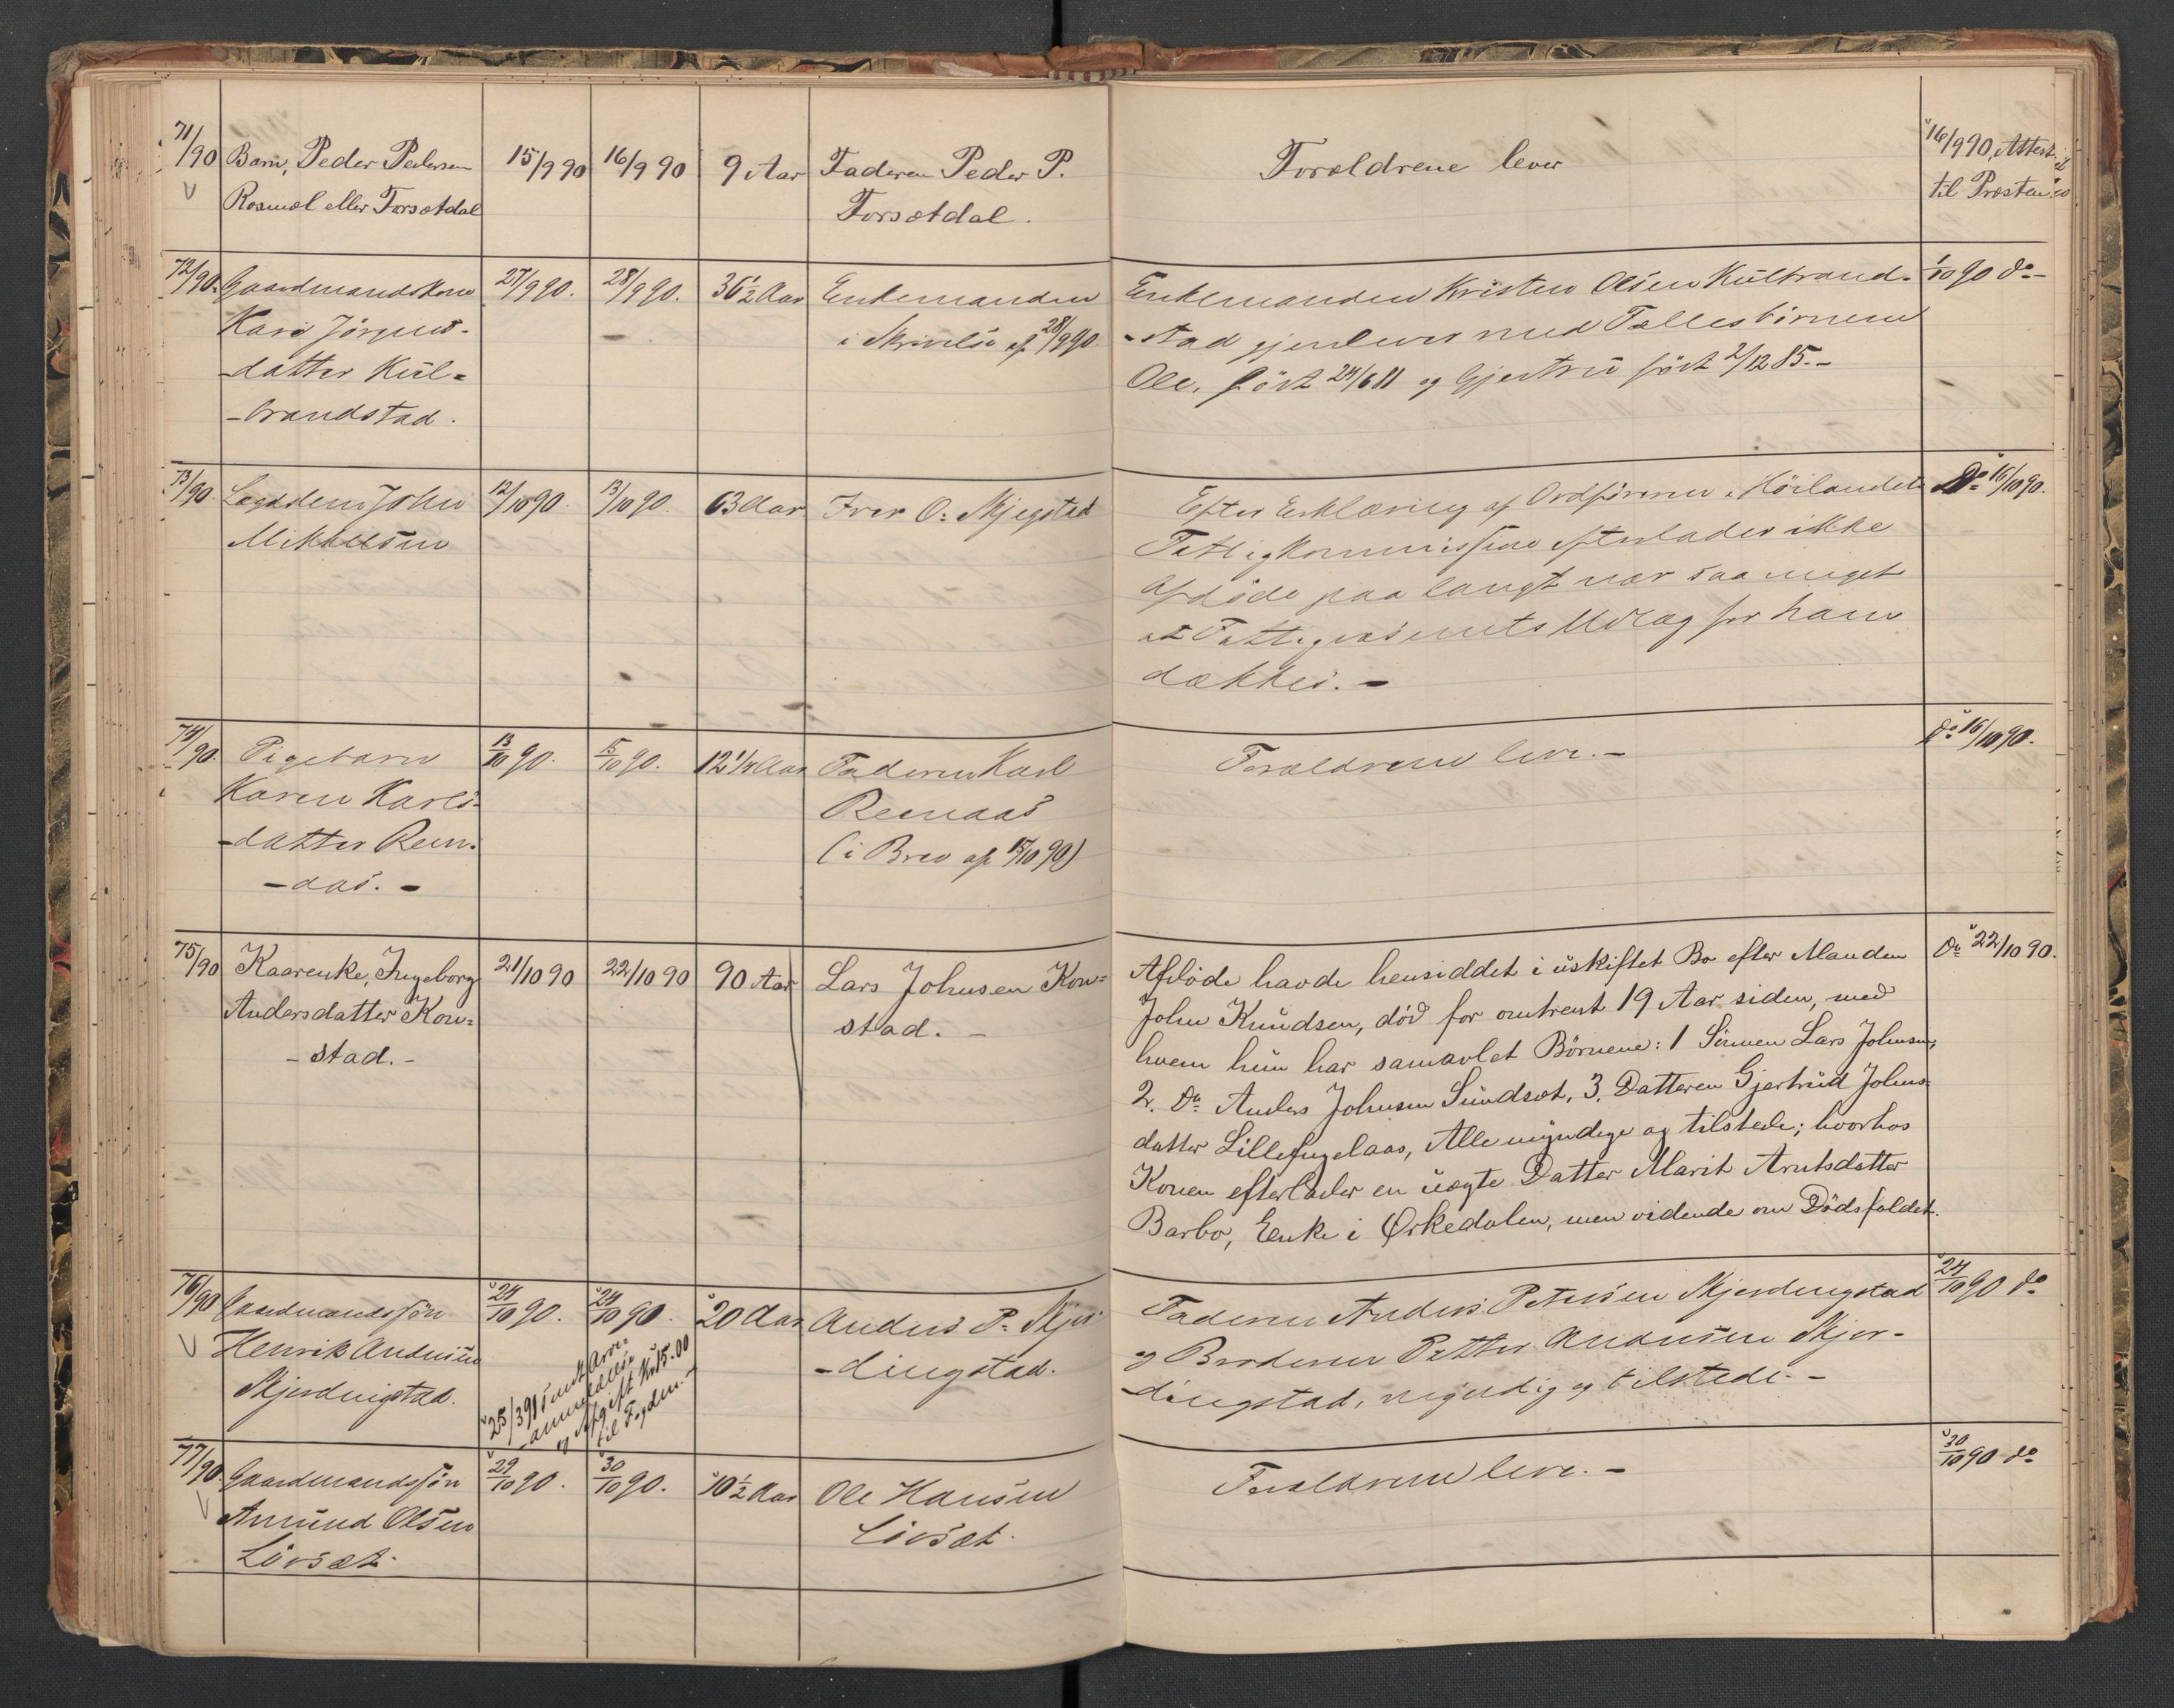 71/90 Barn, Peder Pedersen 15/9 90 16/9 90 9 Aar Faderen Peder P. Forældrene lever 16/9 90, Attest
Rosmæl eller Forsætdal Forsætdal. til Præsten
72/90. Gaardmandskone 27/9 90. 28/9 90. 36½ Aar Enkemanden Enkemanden Kristen Olsen Kulbrand- 1/10 90 do-
Kari Jörgens- i Skrivelse af 28/9 90. -stad gjenlever med Fællesbörnene
-datter Kul- Ole, födt 24/6 81 og Gjertru födt 2/12 85.-
-brandstad.
73/90. Lægdslem John 12/10 90. 13/10 90. 63 Aar Iver O: Skjegstad Efter Erklæring af Ordföreren i Höilandets Do 16/10 90.
Mikkelsen Fattigkommission efterlader ikke
Afdöde paa langt nær saa meget
at Fattigvæsenets Udlæg for ham
dækkes.-
74/90. Pigebarn 13/10 90. 15/10 90. 12 1/4 Aar Faderen Karl Forældrene leve.- Do 16/10 90.
Karen Karls- Remaas
-datter Rem- (i Brev af 15/10 90)
-aas.-
75/90 Kaarenke, Ingeborg 21/10 90 22/10 90 90 Aar Lars Johnsen Kon- Afdöde havde hensiddet i uskiftet Bo efter Manden Do 22/10 90.
Andersdatter Kon- stad.- John Knudsen, död for omtrent 19 Aar siden, med
-stad.- hvem hun har samavlet Börnene: 1 Sönnen Lars Johnsen,
2. Do Anders Johnsen Sundsæt, 3. Datteren Gjertrud Johns-
datter Lillefuglaas, Alle myndige og tilstede; hvorhos
Konen efterlader en uægte Datter Marit Arntsdatter
Barbo, Enke i Ørkedalen, men vidende om Dödsfaldet.
76/90 Gaardmandssön 24/10 90. 24/10 90. 20 Aar Anders P: Skjer- Faderen Anders Petersen Skjerdingstad 24/10 90 do
Henrik Andersen -dingstad. og Broderen Petter Andersen Skjer-
Skjerdingstad. -dingstad, myndig og tilstede.-
25/3 91 sendt Arve-
-anmeldelse
og Afgift Kr 15.00
til Fogden.-
77/90. Gaardmandssön 29/10 90. 30/10 90. 10½ Aar Ole Hansen Forældrene leve.- 30/10 90 do
Amund Olsen Livsæt.
Livsæt.